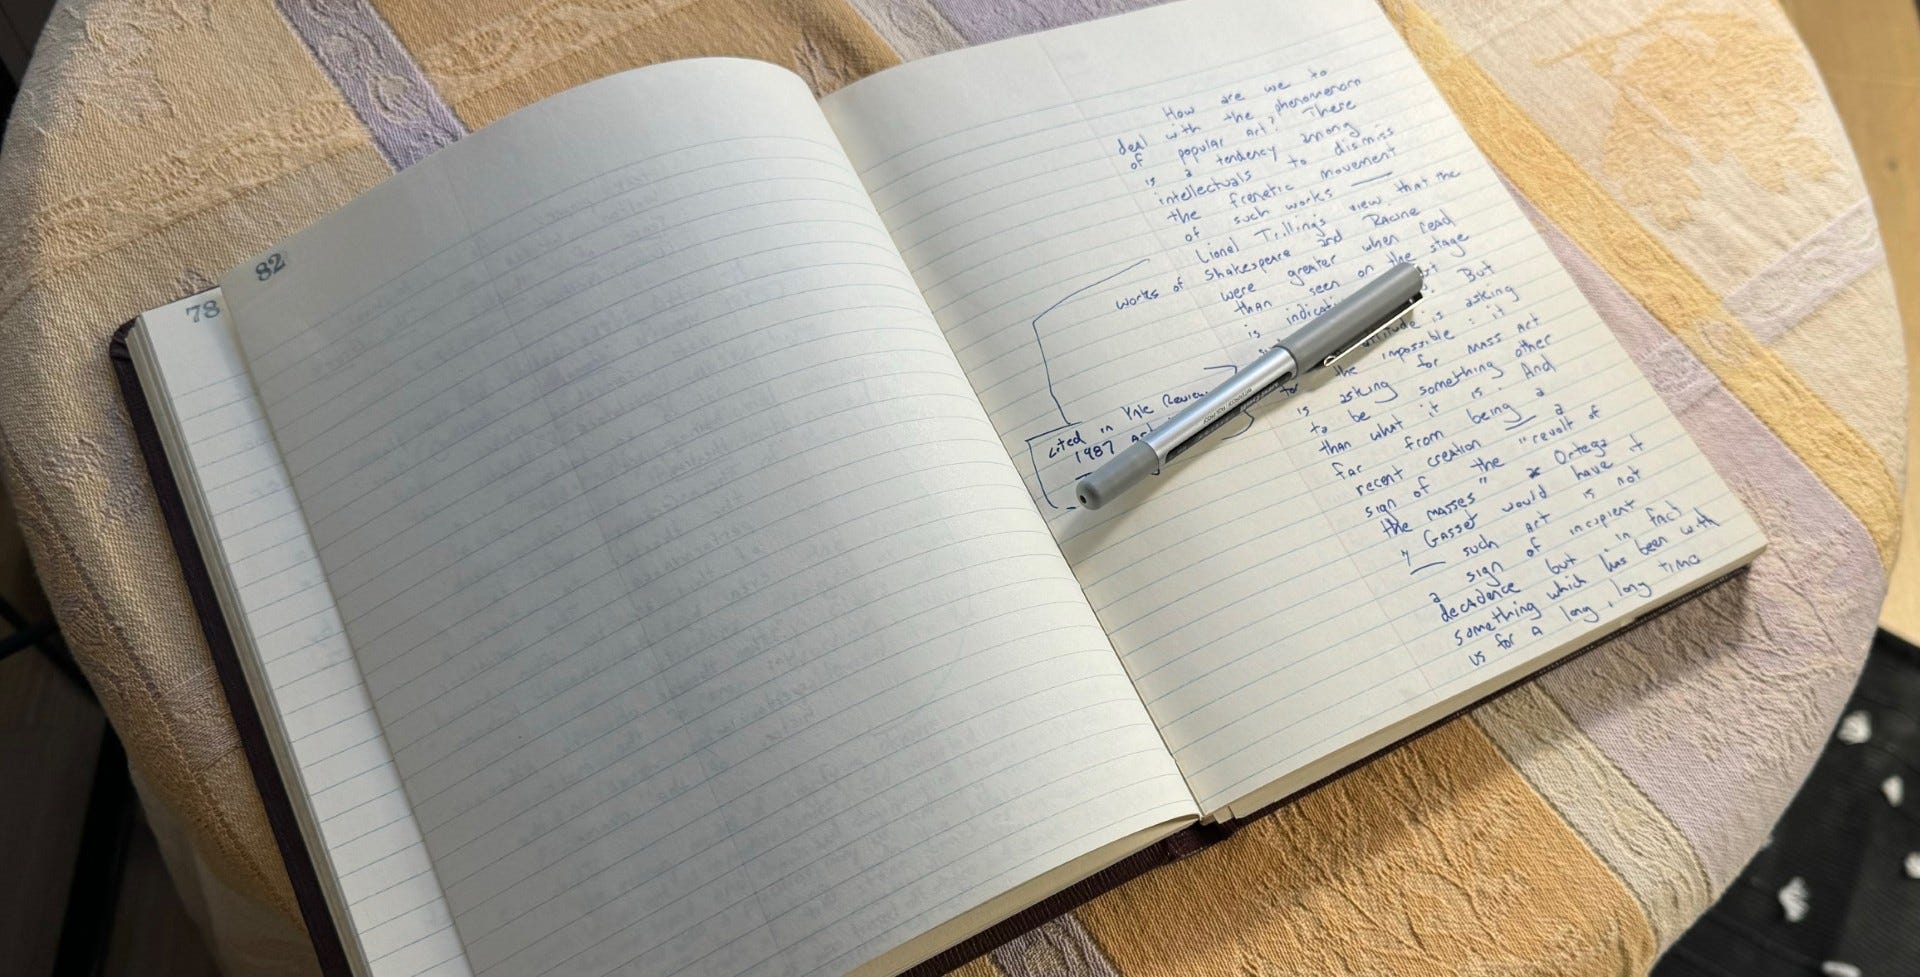 82
78
How are we to
deal with the phenomenon
of popular Art? There
is a tendency among
intellectuals to dismiss
the frenetic movement
of such works —
Lionel Trilling's view that the
works of Shakespeare and Racine
were greater when read
than seen on the stage
is
But
is asking
for the impossible: it
is asking for mass Art
to be something other
than what it is. And
far from being a
recent creation — a
sign of the "revolt of
the masses" as Ortega
y Gasset would have it
— such Art is not
a sign of incipient
decadence but in fact
something which has been with
us for a long, long time
cited in Yale Review
1987